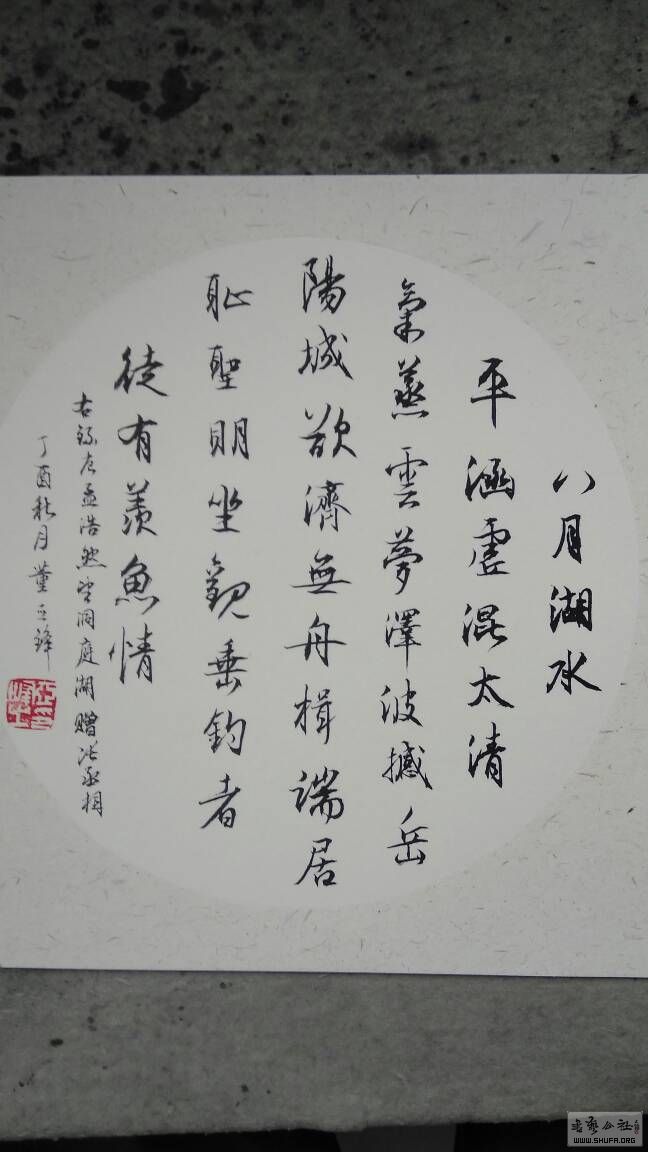 八月湖水
平涵虚混太清
氣蒸雲夢澤波撼岳
陽城欲濟無舟楫端居
恥聖明坐觀垂釣者
徒有羨魚情
右錄唐孟浩然望洞庭湖贈張丞相
丁酉秋月董正鋒
WWW.SHUFA.ORG